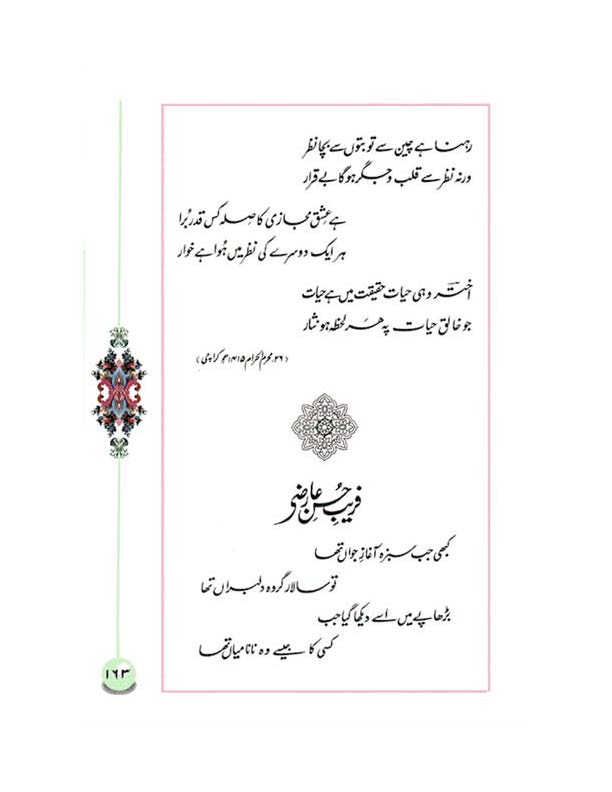 رہنا ہے چین سے تو بتوں سے بچا نظر
ورنہ نظر سے قلب و جگر ہوگا بے قرار
ہے عشقِ مجازی کا صلہ کس قدر بُرا
ہر ایک دوسرے کی نظر میں ہُوا ہے خوار
اخترؔ وہی حیات حقیقت میں ہے حیات
جو خالقِ حیات پہ ہر لحظہ ہو نثار
(۲۶ محرم الحرام ۱۴۱۵ھ کراچی)
فریبِ حُسنِ عارضی
کبھی جب سبزہ آغازِ جواں تھا
تو سالارِ گروہِ دلبراں تھا
بڑھاپے میں اسے دیکھا گیا جب
کسی کا جیسے وہ نانا میاں تھا
۱۶۳